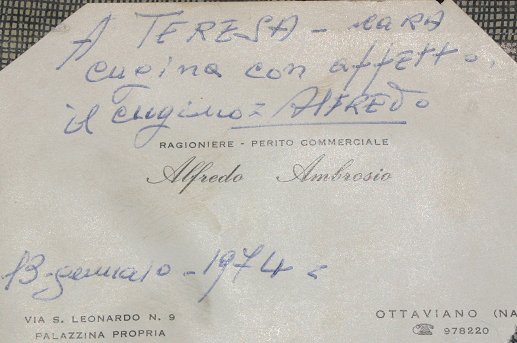 A TERESA - caRA
cugina con affetto,
il cugino = AlFREDo
RAGIONIERE - PERITO COMMERCIALE
Alfredo Ambrosio
13-gennaio - 1974 =
VIA S. LEONARDO N. 9
PALAZZINA PROPRIA
OTTAVIANO (NA
☎ 978220